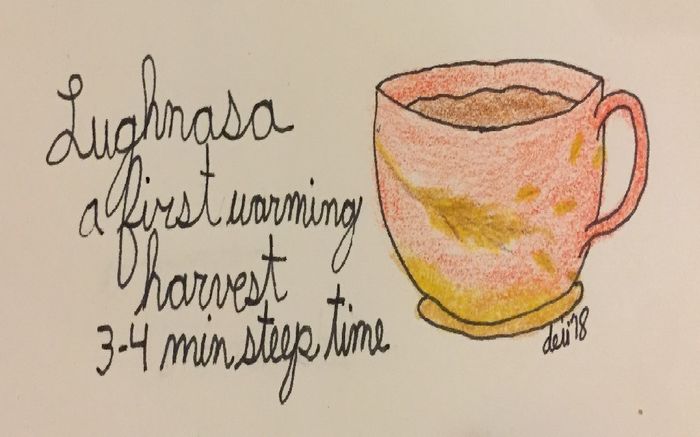 Lughnasa
a first warming
harvest
3-4 min steep time
deii '18